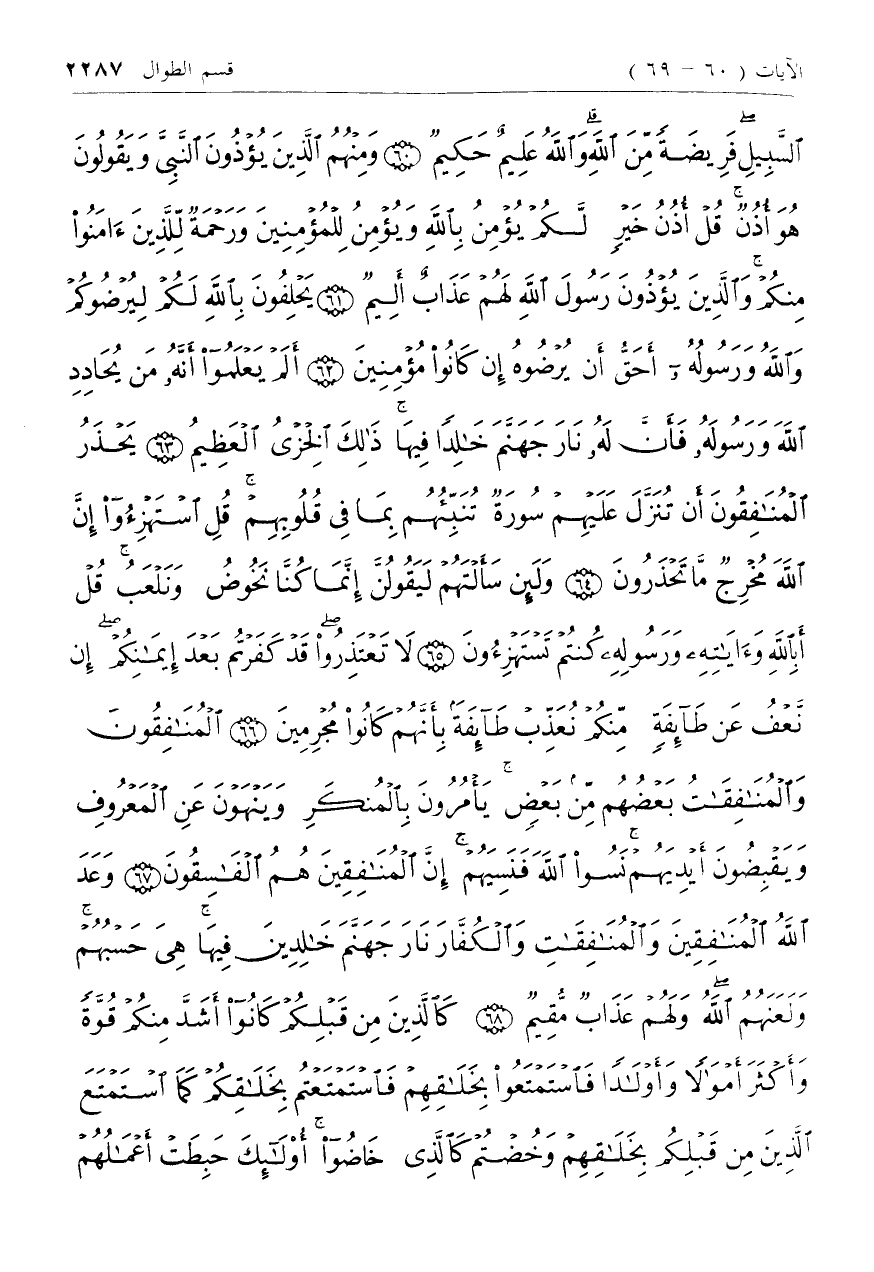 الآيات ( ٦٠ - ٦٩ ) قسم الطوال ٢٢٨٧
ٱلسَّبِيلِۖ فَرِيضَةً مِّنَ ٱللَّهِۗ وَٱللَّهُ عَلِيمٌ حَكِيمٌ ۝٦٠ وَمِنْهُمُ ٱلَّذِينَ يُؤْذُونَ ٱلنَّبِىَّ وَيَقُولُونَ
هُوَ أُذُنٌۚ قُلْ أُذُنُ خَيْرٍ لَّكُمْ يُؤْمِنُ بِٱللَّهِ وَيُؤْمِنُ لِلْمُؤْمِنِينَ وَرَحْمَةٌ لِّلَّذِينَ ءَامَنُوا۟
مِنكُمْۚ وَٱلَّذِينَ يُؤْذُونَ رَسُولَ ٱللَّهِ لَهُمْ عَذَابٌ أَلِيمٌ ۝٦١ يَحْلِفُونَ بِٱللَّهِ لَكُمْ لِيُرْضُوكُمْ
وَٱللَّهُ وَرَسُولُهُۥٓ أَحَقُّ أَن يُرْضُوهُ إِن كَانُوا۟ مُؤْمِنِينَ ۝٦٢ أَلَمْ يَعْلَمُوٓا۟ أَنَّهُۥ مَن يُحَادِدِ
ٱللَّهَ وَرَسُولَهُۥ فَأَنَّ لَهُۥ نَارَ جَهَنَّمَ خَـٰلِدًا فِيهَاۚ ذَٰلِكَ ٱلْخِزْىُ ٱلْعَظِيمُ ۝٦٣ يَحْذَرُ
ٱلْمُنَـٰفِقُونَ أَن تُنَزَّلَ عَلَيْهِمْ سُورَةٌ تُنَبِّئُهُم بِمَا فِى قُلُوبِهِمْۚ قُلِ ٱسْتَهْزِءُوٓا۟ إِنَّ
ٱللَّهَ مُخْرِجٌ مَّا تَحْذَرُونَ ۝٦٤ وَلَئِن سَأَلْتَهُمْ لَيَقُولُنَّ إِنَّمَا كُنَّا نَخُوضُ وَنَلْعَبُۚ قُلْ
أَبِٱللَّهِ وَءَايَـٰتِهِۦ وَرَسُولِهِۦ كُنتُمْ تَسْتَهْزِءُونَ ۝٦٥ لَا تَعْتَذِرُوا۟ۖ قَدْ كَفَرْتُم بَعْدَ إِيمَـٰنِكُمْۖ إِن
نَّعْفُ عَن طَآئِفَةٍ مِّنكُمْ نُعَذِّبْ طَآئِفَةًۢ بِأَنَّهُمْ كَانُوا۟ مُجْرِمِينَ ۝٦٦ ٱلْمُنَـٰفِقُونَ
وَٱلْمُنَـٰفِقَـٰتُ بَعْضُهُم مِّنۢ بَعْضٍۚ يَأْمُرُونَ بِٱلْمُنكَرِ وَيَنْهَوْنَ عَنِ ٱلْمَعْرُوفِ
وَيَقْبِضُونَ أَيْدِيَهُمْۚ نَسُوا۟ ٱللَّهَ فَنَسِيَهُمْۚ إِنَّ ٱلْمُنَـٰفِقِينَ هُمُ ٱلْفَـٰسِقُونَ ۝٦٧ وَعَدَ
ٱللَّهُ ٱلْمُنَـٰفِقِينَ وَٱلْمُنَـٰفِقَـٰتِ وَٱلْكُفَّارَ نَارَ جَهَنَّمَ خَـٰلِدِينَ فِيهَاۚ هِىَ حَسْبُهُمْۚ
وَلَعَنَهُمُ ٱللَّهُۖ وَلَهُمْ عَذَابٌ مُّقِيمٌ ۝٦٨ كَٱلَّذِينَ مِن قَبْلِكُمْ كَانُوٓا۟ أَشَدَّ مِنكُمْ قُوَّةً
وَأَكْثَرَ أَمْوَٰلًا وَأَوْلَـٰدًا فَٱسْتَمْتَعُوا۟ بِخَلَـٰقِهِمْ فَٱسْتَمْتَعْتُم بِخَلَـٰقِكُمْ كَمَا ٱسْتَمْتَعَ
ٱلَّذِينَ مِن قَبْلِكُم بِخَلَـٰقِهِمْ وَخُضْتُمْ كَٱلَّذِى خَاضُوٓا۟ۚ أُو۟لَـٰٓئِكَ حَبِطَتْ أَعْمَـٰلُهُمْ